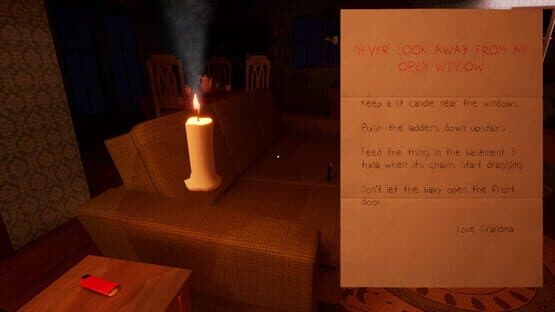 NEVER LOOK AWAY FROM AN
OPEN WINDOW
Keep a lit candle near the windows
Push the ladders down upstairs
Feed the thing in the basement 3
tuna when its chains start dragging
Don't let the baby open the front
door
Love Grandma